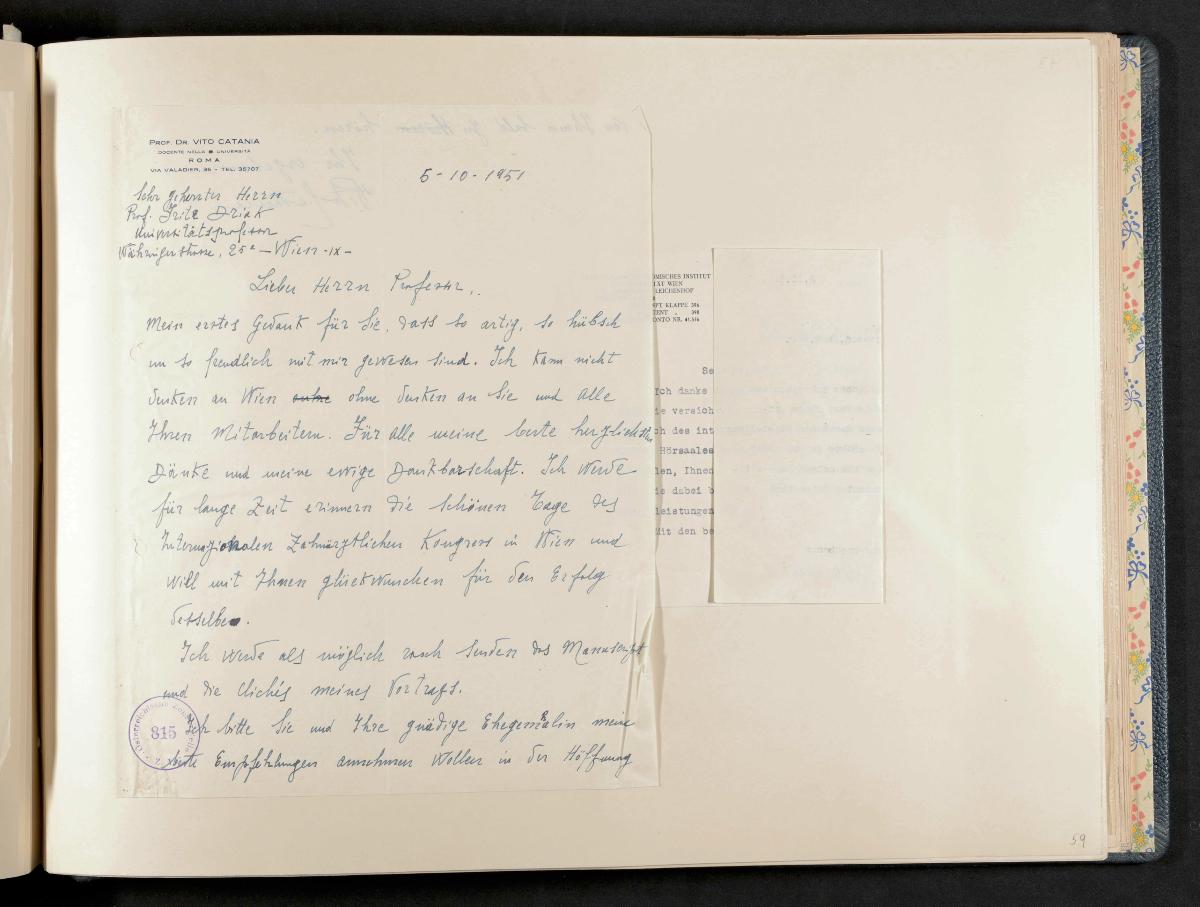 PROF. DR. VITO CATANIA
DOCENTE NELLA R. UNIVERSITÀ
ROMA
VIA VALADIER, 36 - TEL. 35707
5-10-1951
Sehr geherrter Herrn
Prof. Fritz Driak
Universitätsprofessor
Währingerstrasse, 25ª - Wien - IX -
Lieber Herrn Professor,.
Mein erstes Gedank für Sie, dass so artig, so hübsch
un so freudlich mit mir gewesen sind. Ich kann nicht
denken an Wien ohne denken an Sie und alle
Ihren Mitarbeitern. Für alle meine beste herzlichsten
Dänke und meine ewige Dankbarschaft. Ich werde
für lange Zeit erinnern die schönen Tage des
Internazionalen Zahnärztlichen Kongress in Wien und
will mit Ihnen glückwunschen für den Erfolg
desselben.
Ich werde als möglich rasch senden das Manuscript
und die Clichés meines Vortrags.
Ich bitte Sie und Ihre gnädige Ehegemalin meine
beste Empfehlungen annehmen wollen in der Höffnung
815
OMISCHES INSTITUT
TÄT WIEN
REICHENHOF
NFT KLAPPE 396
TENT „ 398
ONTO NR. 41.516
Se
Ich danke
ie versich
ch des int
Hörsaales
len, Ihnen
ie dabei b
leistungen
Mit den be
59